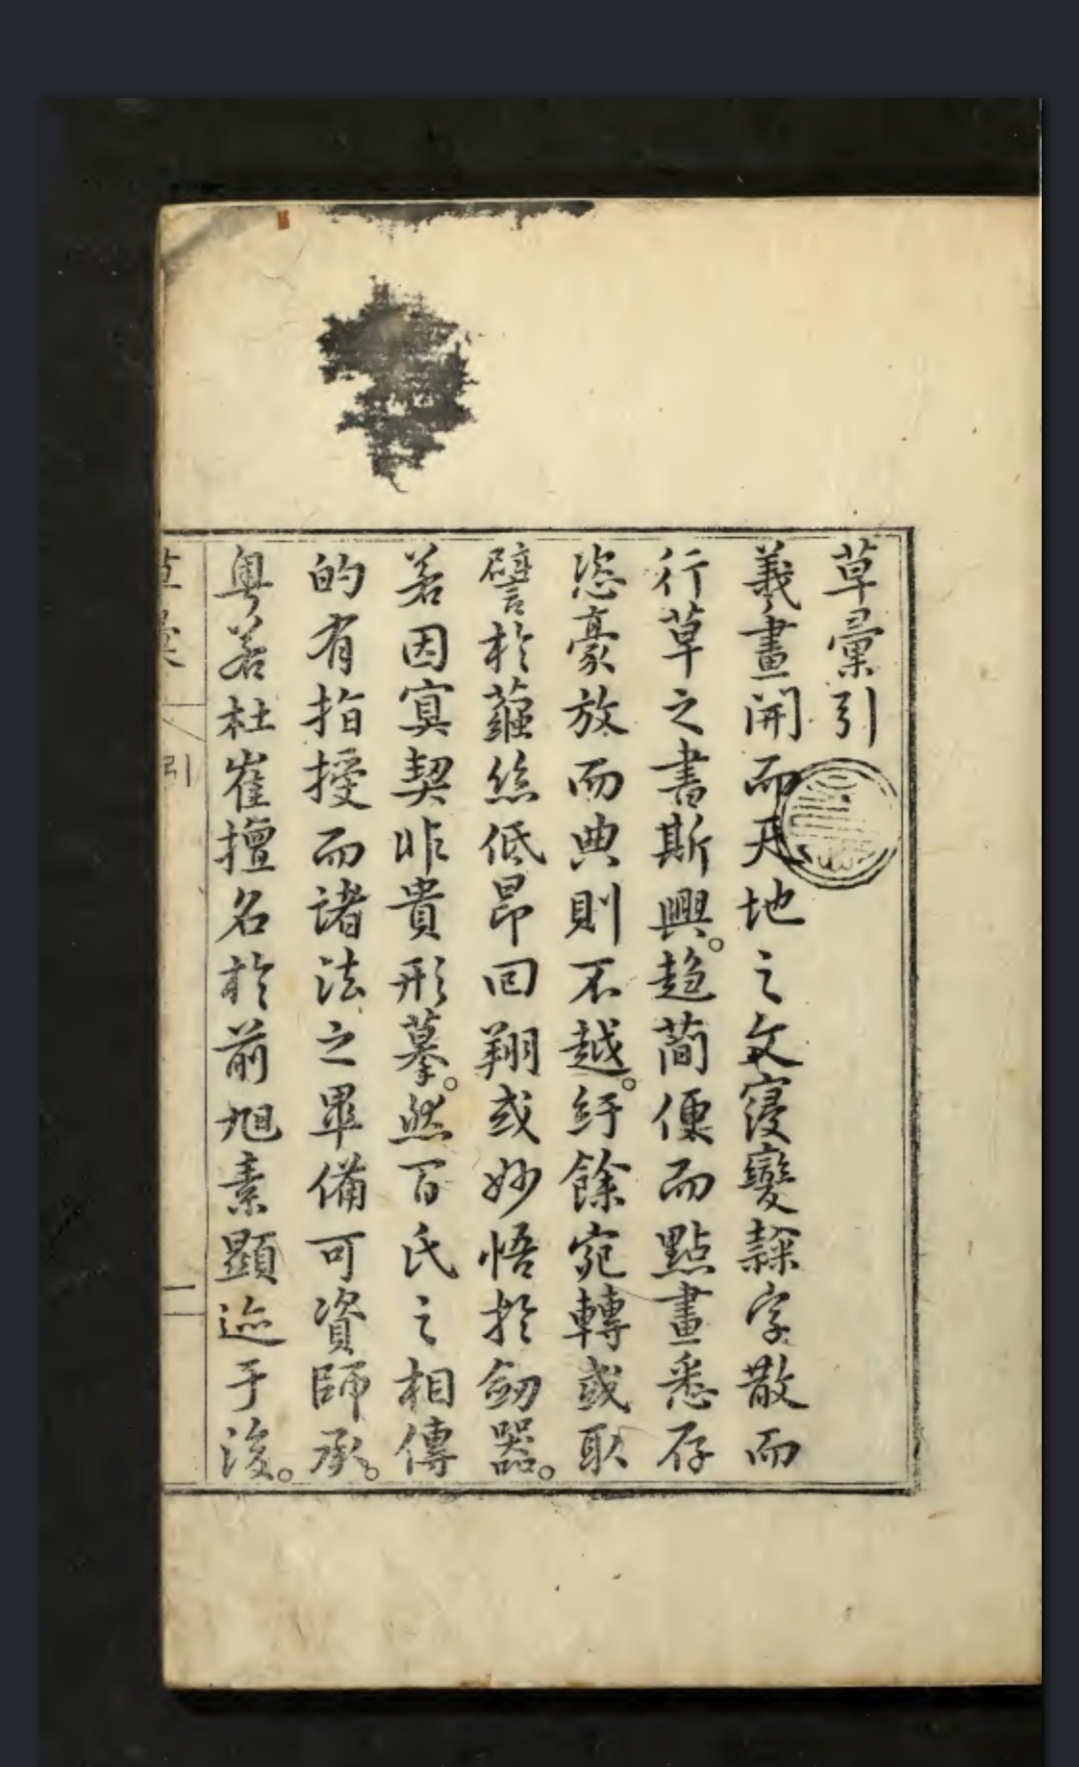 草彙引
羲畫開而天地之文寖變隸字散而
行草之書斯興。趨簡便而點畫悉存
恣豪放而典則不越。紆餘宛轉或取
譬於蠶絲低昂回翔或妙悟於劒器。
若因寞契非貴形摹。然百氏之相傳
的有指授而諸法之畢備可資師承。
粤若杜崔擅名於前旭素顯迹于後。
草彙
引
一